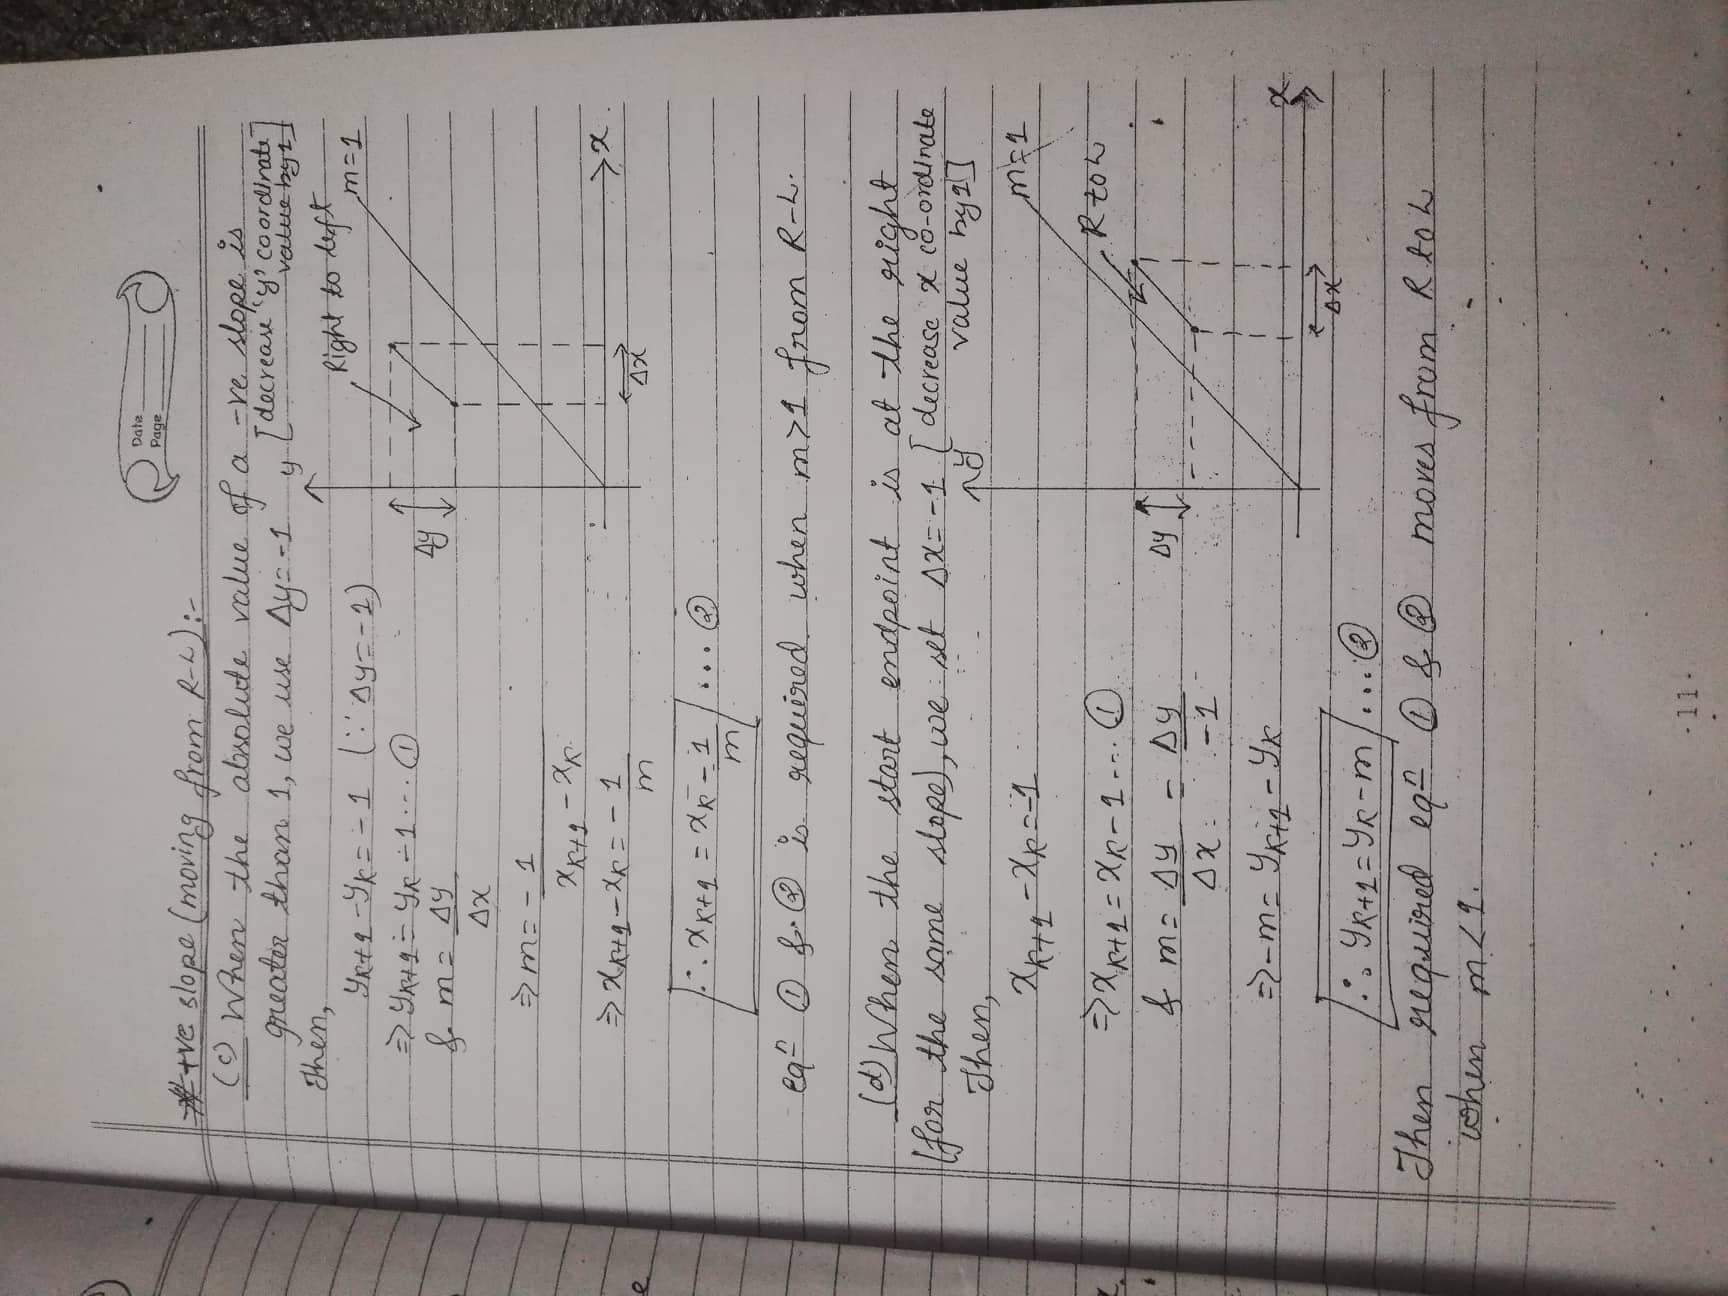 Date
Page
+ve slope (moving from R-L):-
(c) When the absolute value of a -ve slope is
greater than 1, we use Δy=-1 [decrease 'y' coordinate
value by 1]
Then,
y
Right to left
m=1
yK+1 - yK = -1 (∵ Δy=-1)
⇒ yK+1 = yK - 1 ... ①
& m = Δy
Δx
Δy
⇒ m = - 1
xK+1 - xK
⇒ xK+1 - xK = - 1
m
x
Δx
∴ xK+1 = xK - 1 ... ②
m
eqn ① & ② is required when m>1 from R-L.
(d) When the start endpoint is at the right
(for the same slope), we set Δx=-1 [decrease x co-ordinate
value by 1]
Then,
y
xK+1 - xK = -1
m=1
⇒ xK+1 = xK - 1 ... ①
R to L
& m = Δy = Δy
Δx -1
Δy
⇒ -m = yK+1 - yK
x
Δx
∴ yK+1 = yK - m ... ②
Then required eqn ① & ② moves from R to L
when m<1.
-11-